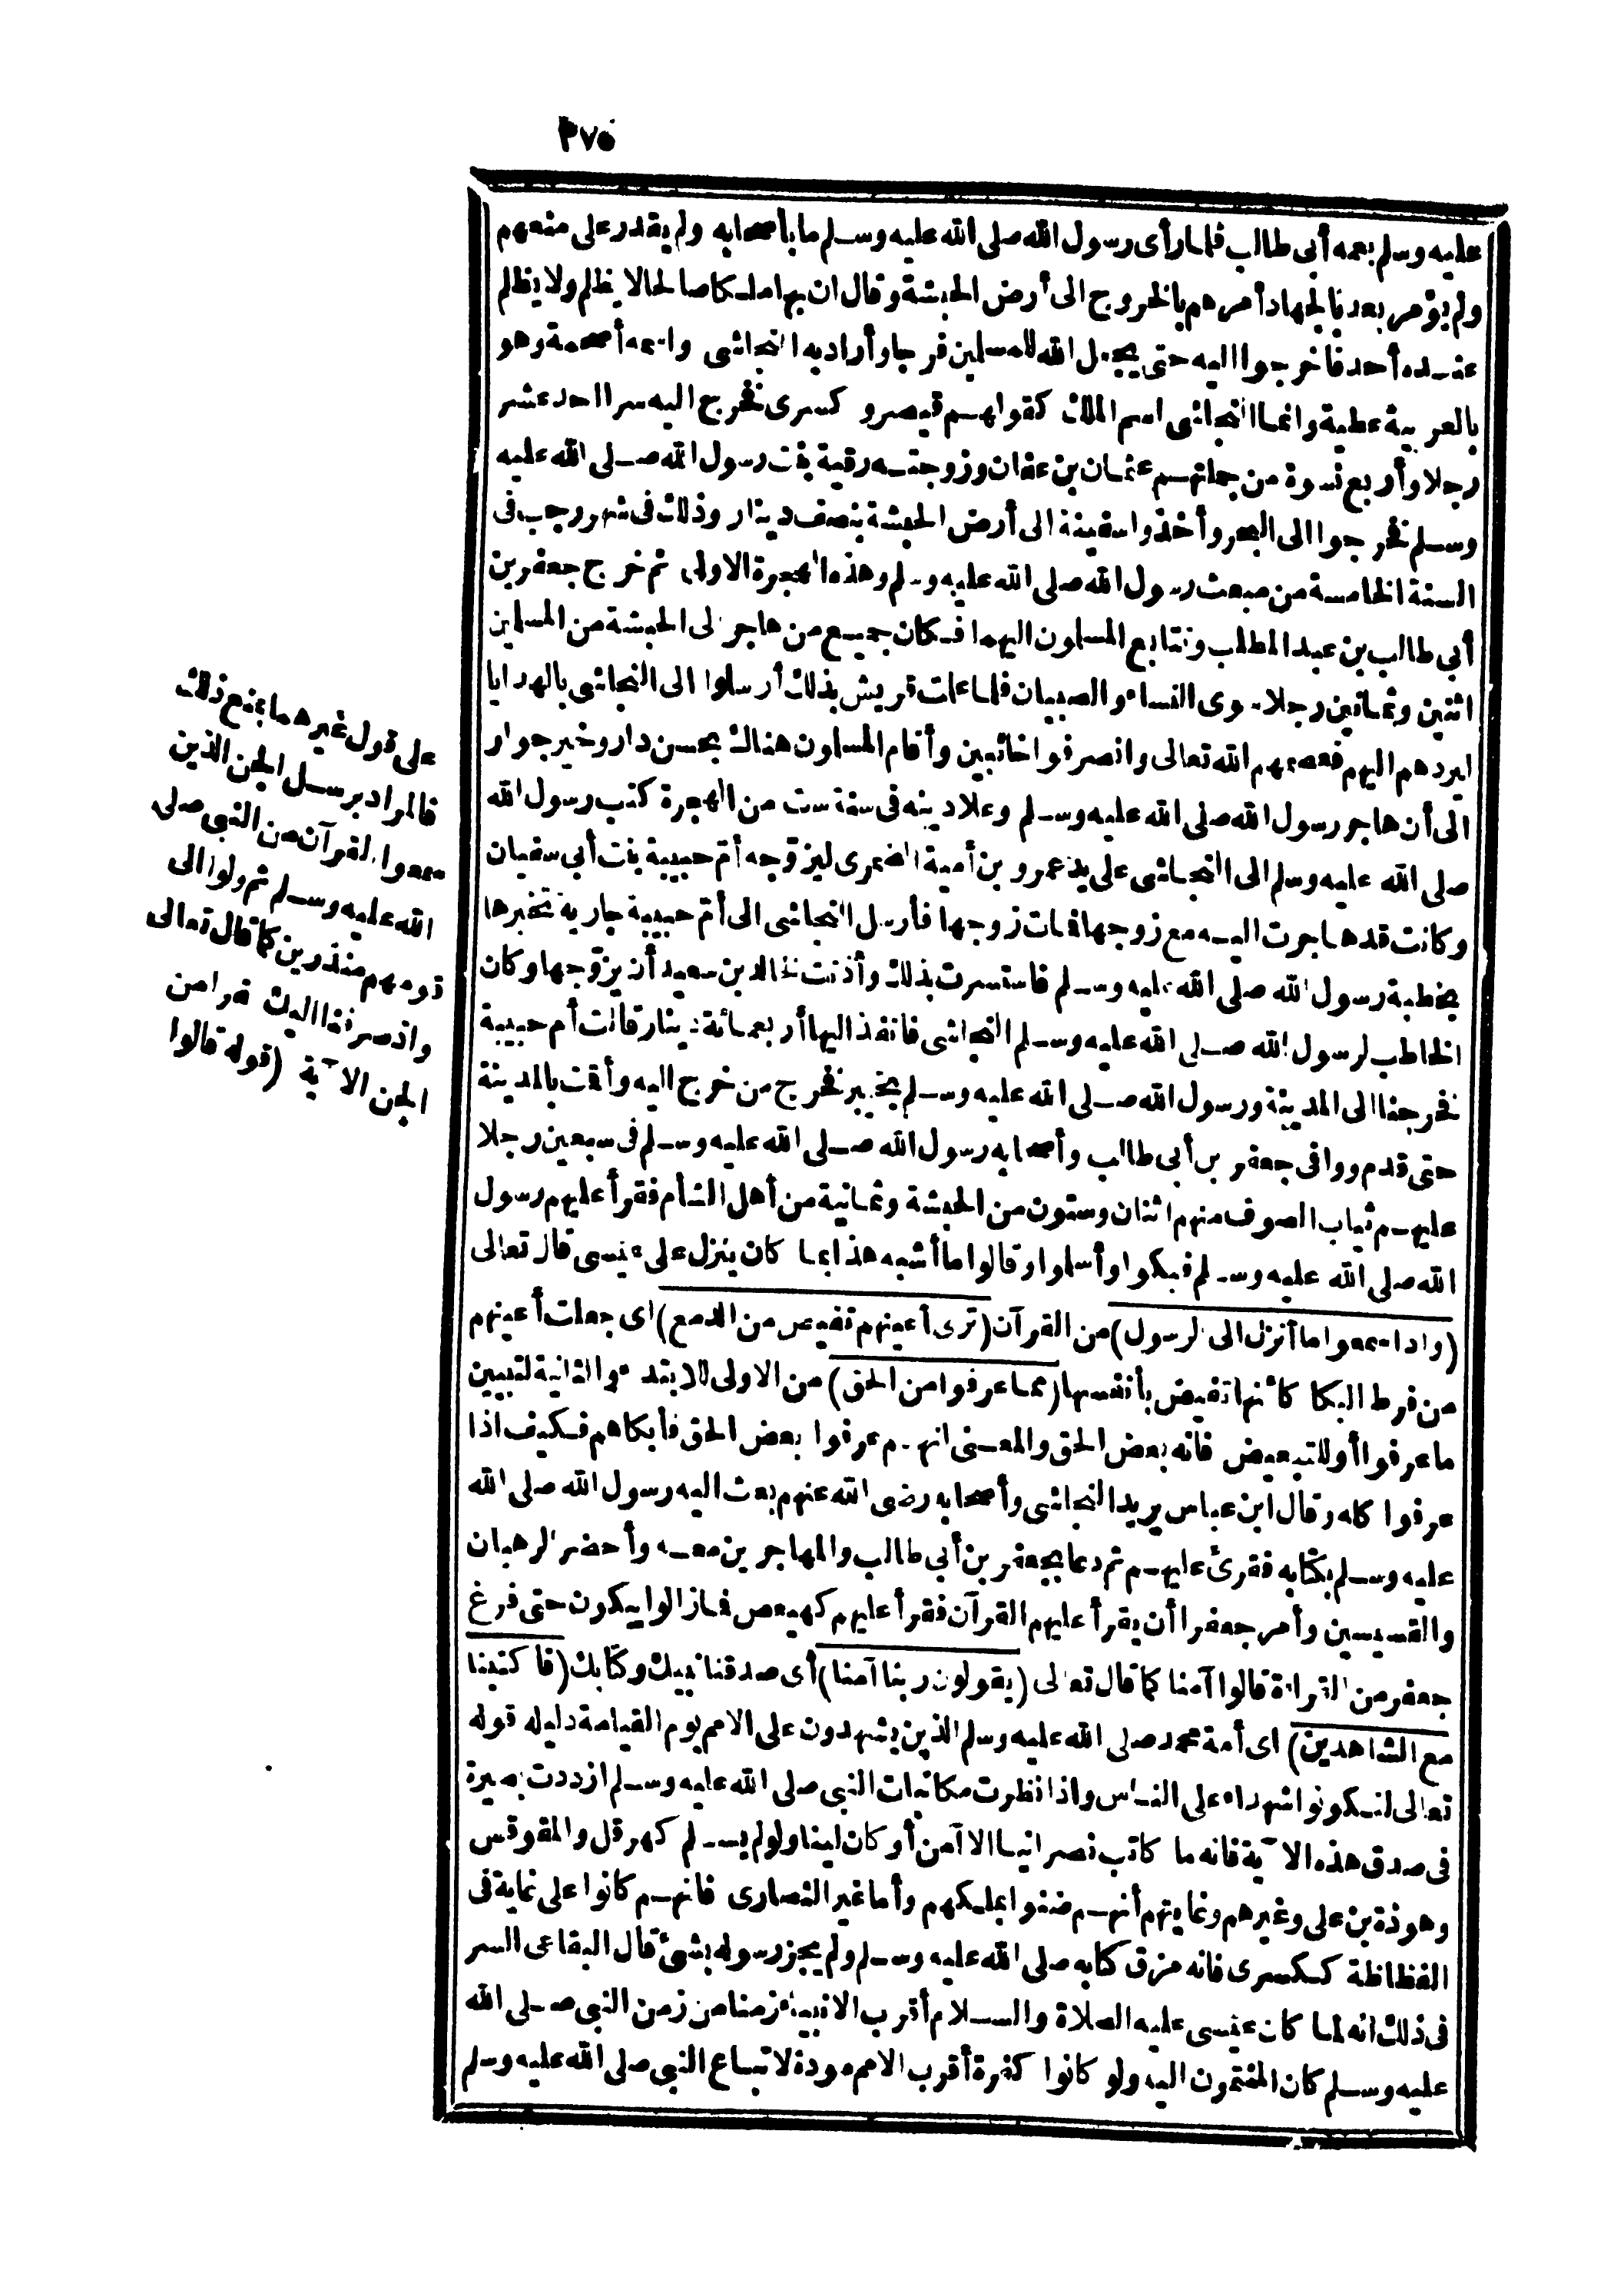 ٣٧٥
عليه وسلم بعمه أبى طالب فلما رأى رسول الله صلى الله عليه وسلم ما بأصحابه ولم يقدر على منعهم
ولم يؤمر بعد بالجهاد أمرهم بالخروج الى أرض الحبشة وقال ان بها ملكا صالحا لا يظلم ولا يظلم
عنده أحد فاخرجوا اليه حتى يجعل الله للمسلمين فرجا وأراد به النجاشى واسمه أصحمة وهو
بالعربية عطية وانما النجاشى اسم الملك كقولهم قيصر وكسرى فخرج اليه سرا احد عشر
رجلا وأربع نسوة من جملتهم عثمان بن عفان وزوجته رقية بنت رسول الله صلى الله عليه
وسلم فخرجوا الى البحر وأخذوا سفينة الى أرض الحبشة بنصف دينار وذلك فى شهر رجب فى
السنة الخامسة من مبعث رسول الله صلى الله عليه وسلم وهذه الهجرة الاولى ثم خرج جعفر بن
أبى طالب بن عبد المطلب وتتابع المسلمون اليها فكان جميع من هاجر الى الحبشة من المسلمين
اثنين وثمانين رجلا سوى النساء والصبيان فلما علمت قريش بذلك أرسلوا الى النجاشى بالهدايا
ليردهم اليهم فعصمهم الله تعالى وانصرفوا خائبين وأقام المسلمون هناك بحسن دار وخير جوار
الى أن هاجر رسول الله صلى الله عليه وسلم وعلا دينه فى سنة ست من الهجرة كتب رسول الله
صلى الله عليه وسلم الى النجاشى على يد عمرو بن أمية الضمرى ليزوجه أم حبيبة بنت أبى سفيان
وكانت قد هاجرت اليه مع زوجها فمات زوجها فأرسل النجاشى الى أم حبيبة جارية تخبرها
بخطبة رسول الله صلى الله عليه وسلم فاستسرت بذلك وأذنت لخالد بن سعيد أن يزوجها وكان
الخاطب لرسول الله صلى الله عليه وسلم النجاشى فانفذ اليها أربعمائة دينار قالت أم حبيبة
فخرجنا الى المدينة ورسول الله صلى الله عليه وسلم بخيبر فخرج من خرج اليه وأقمت بالمدينة
حتى قدم ووافى جعفر بن أبى طالب وأصحابه رسول الله صلى الله عليه وسلم فى سبعين رجلا
عليهم ثياب الصوف منهم اثنان وستون من الحبشة وثمانية من أهل الشأم فقرأ عليهم رسول
الله صلى الله عليه وسلم فبكوا وأسلموا وقالوا ما أشبه هذا بما كان ينزل على عيسى قال تعالى
(واذا سمعوا ما أنزل الى الرسول) من القرآن (ترى أعينهم تفيض من الدمع) اى جعلت أعينهم
من فرط البكا كأنها تفيض بأنفسها (مما عرفوا من الحق) من الاولى للابتداء والثانية لتبيين
ما عرفوا أو للتبعيض فانه بعض الحق والمعنى انهم عرفوا بعض الحق فأبكاهم فكيف اذا
عرفوا كله وقال ابن عباس يريد النجاشى وأصحابه رضى الله عنهم بعث اليه رسول الله صلى الله
عليه وسلم بكتابه فقرئ عليهم ثم دعا بجعفر بن أبى طالب والمهاجرين معه وأحضر الرهبان
والقسيسين وأمر جعفرا أن يقرأ عليهم القرآن فقرأ عليهم كهيعص فما زالوا يبكون حتى فرغ
جعفر من القراءة قالوا آمنا كما قال تعالى (يقولون ربنا آمنا) أى صدقنا نبيك وكتابك (فاكتبنا
مع الشاهدين) اى أمة محمد صلى الله عليه وسلم الذين يشهدون على الامم يوم القيامة دليله قوله
تعالى لتكونوا شهداء على الناس واذا نظرت مكاتبات النبى صلى الله عليه وسلم ازددت بصيرة
فى صدق هذه الآية فانه ما كاتب نصرانيا الا آمن أو كان لينا ولو لم يسلم كهرقل والمقوقس
وهوذة بن على وغيرهم وغايتهم أنهم ضنوا بملكهم وأما غير النصارى فانهم كانوا على غاية فى
الفظاظة ككسرى فانه مزق كتابه صلى الله عليه وسلم ولم يجز رسوله بشئ قال البقاعى السر
فى ذلك انه لما كان عيسى عليه الصلاة والسلام أقرب الانبياء زمنا من زمن النبى صلى الله
عليه وسلم كان المنتمون اليه ولو كانوا كفرة أقرب الامم مودة لاتباع النبى صلى الله عليه وسلم
على قول غيرهما يمنع ذلك
فالمراد برسل الجن الذين
سمعوا القرآن من النبى صلى
الله عليه وسلم ثم ولوا الى
قومهم منذرين كما قال تعالى
واذ صرفنا اليك نفرا من
الجن الآية (قوله قالوا